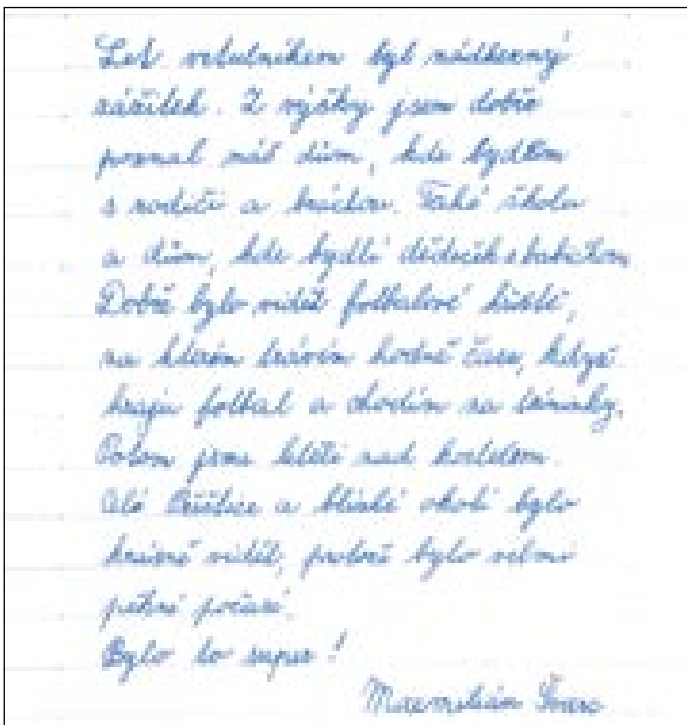 Let vrtulníkem byl nádherný
zážitek. Z výšky jsem dobře
poznal náš dům, kde bydlím
s rodiči a bráchou. Také školu
a dům, kde bydlí dědeček s babičkou.
Dobře bylo vidět fotbalové hřiště,
na kterém trávím hodně času, když
hraju fotbal a chodím na tréninky.
Potom jsme letěli nad kostelem.
Celé a blízké okolí bylo
krásně vidět, protože bylo velmi
pěkné počasí.
Bylo to super!
Maxmilián